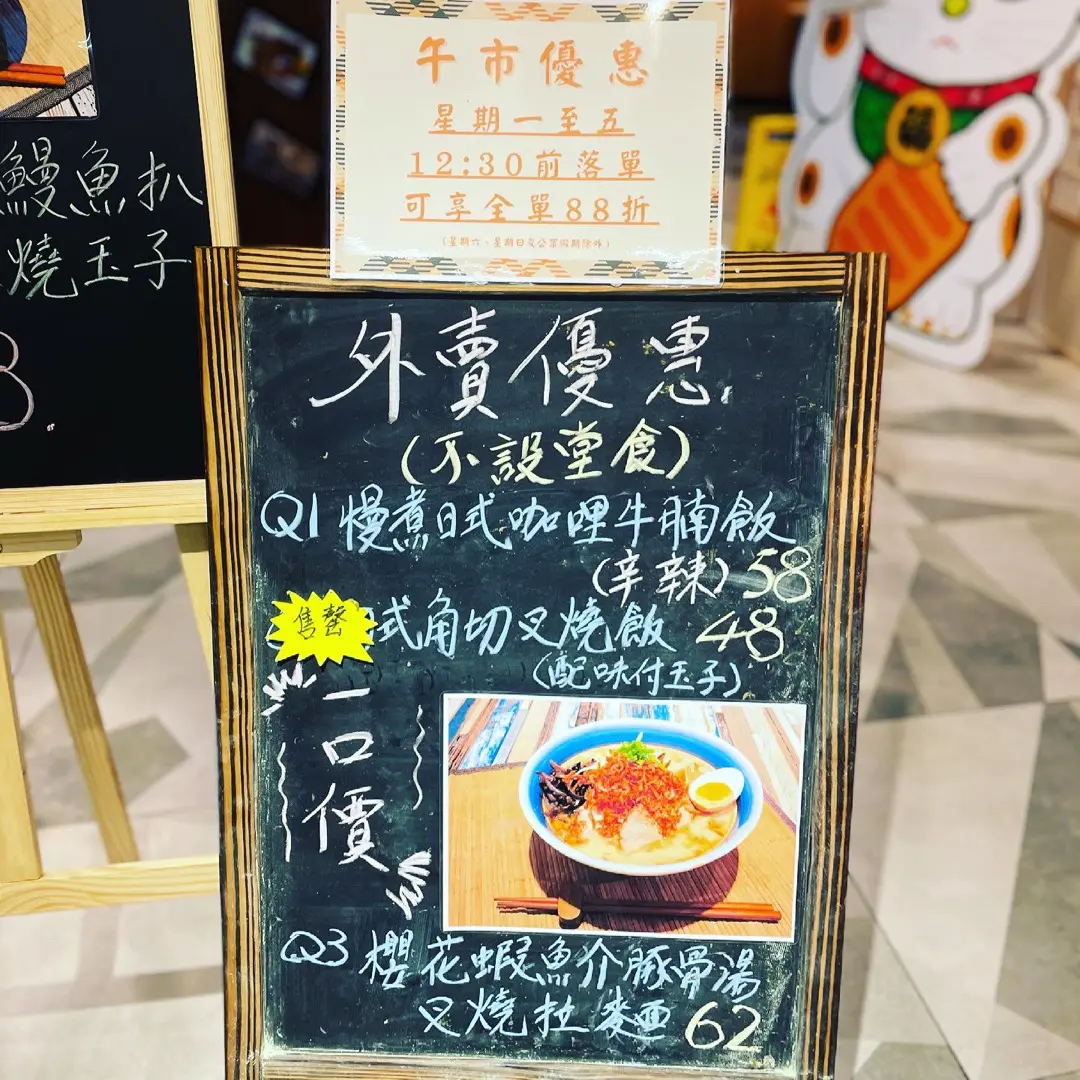 鰻魚扒
燒玉子
午市優惠
星期一至五
12:30前落單
可享全單88折
(星期六、星期日及公眾假期除外)
外賣優惠
(不設堂食)
Q1 慢煮日式咖哩牛腩飯
(辛辣) 58
售罄
式角切叉燒飯 48
(配味付玉子)
一口價
Q3 櫻花蝦魚介豚骨湯
叉燒拉麵 62